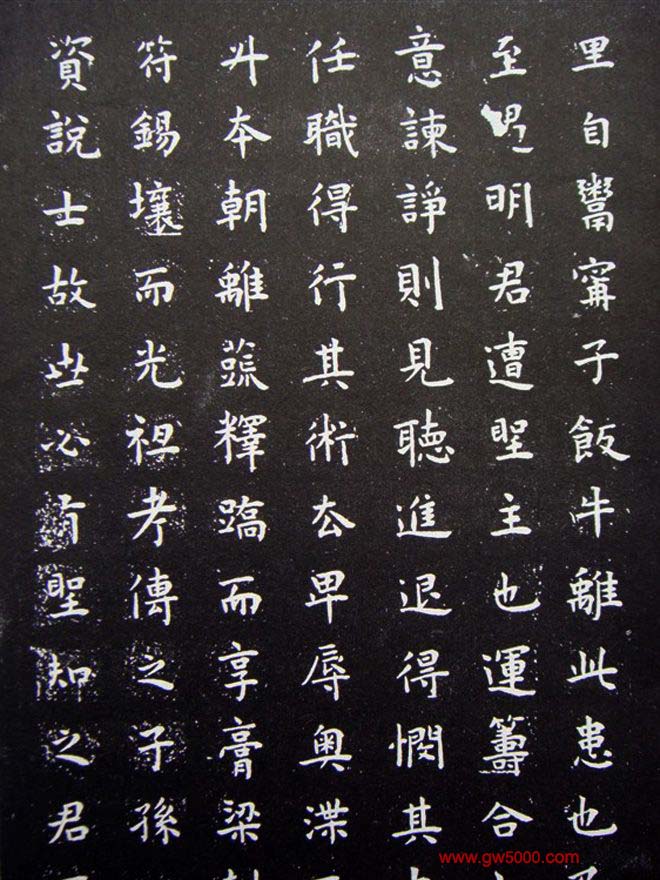 里自鬻甯子飯牛離此患也
至明君遭聖主也運籌合
意諫諍則見聽進退得憫其
任職得行其術去卑辱奧渫
升本朝離蔬釋蹻而享膏梁
符錫壤而光祖考傳之子孫
資說士故世必有聖知之君
www.gw5000.com